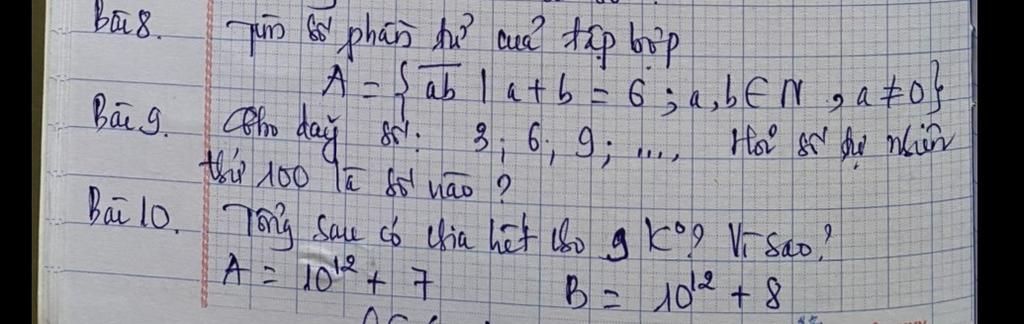 Bài 8. Tìm số phần tử của tập hợp
A = { ab̅ | a + b = 6 ; a, b ∈ N , a ≠ 0}
Bài 9. Cho dãy số: 3; 6; 9; ...., Hỏi số tự nhiên
thứ 100 là số nào ?
Bài 10. Tổng sau có chia hết cho 9 K⁰? Vì sao?
A = 10¹² + 7 B = 10¹² + 8